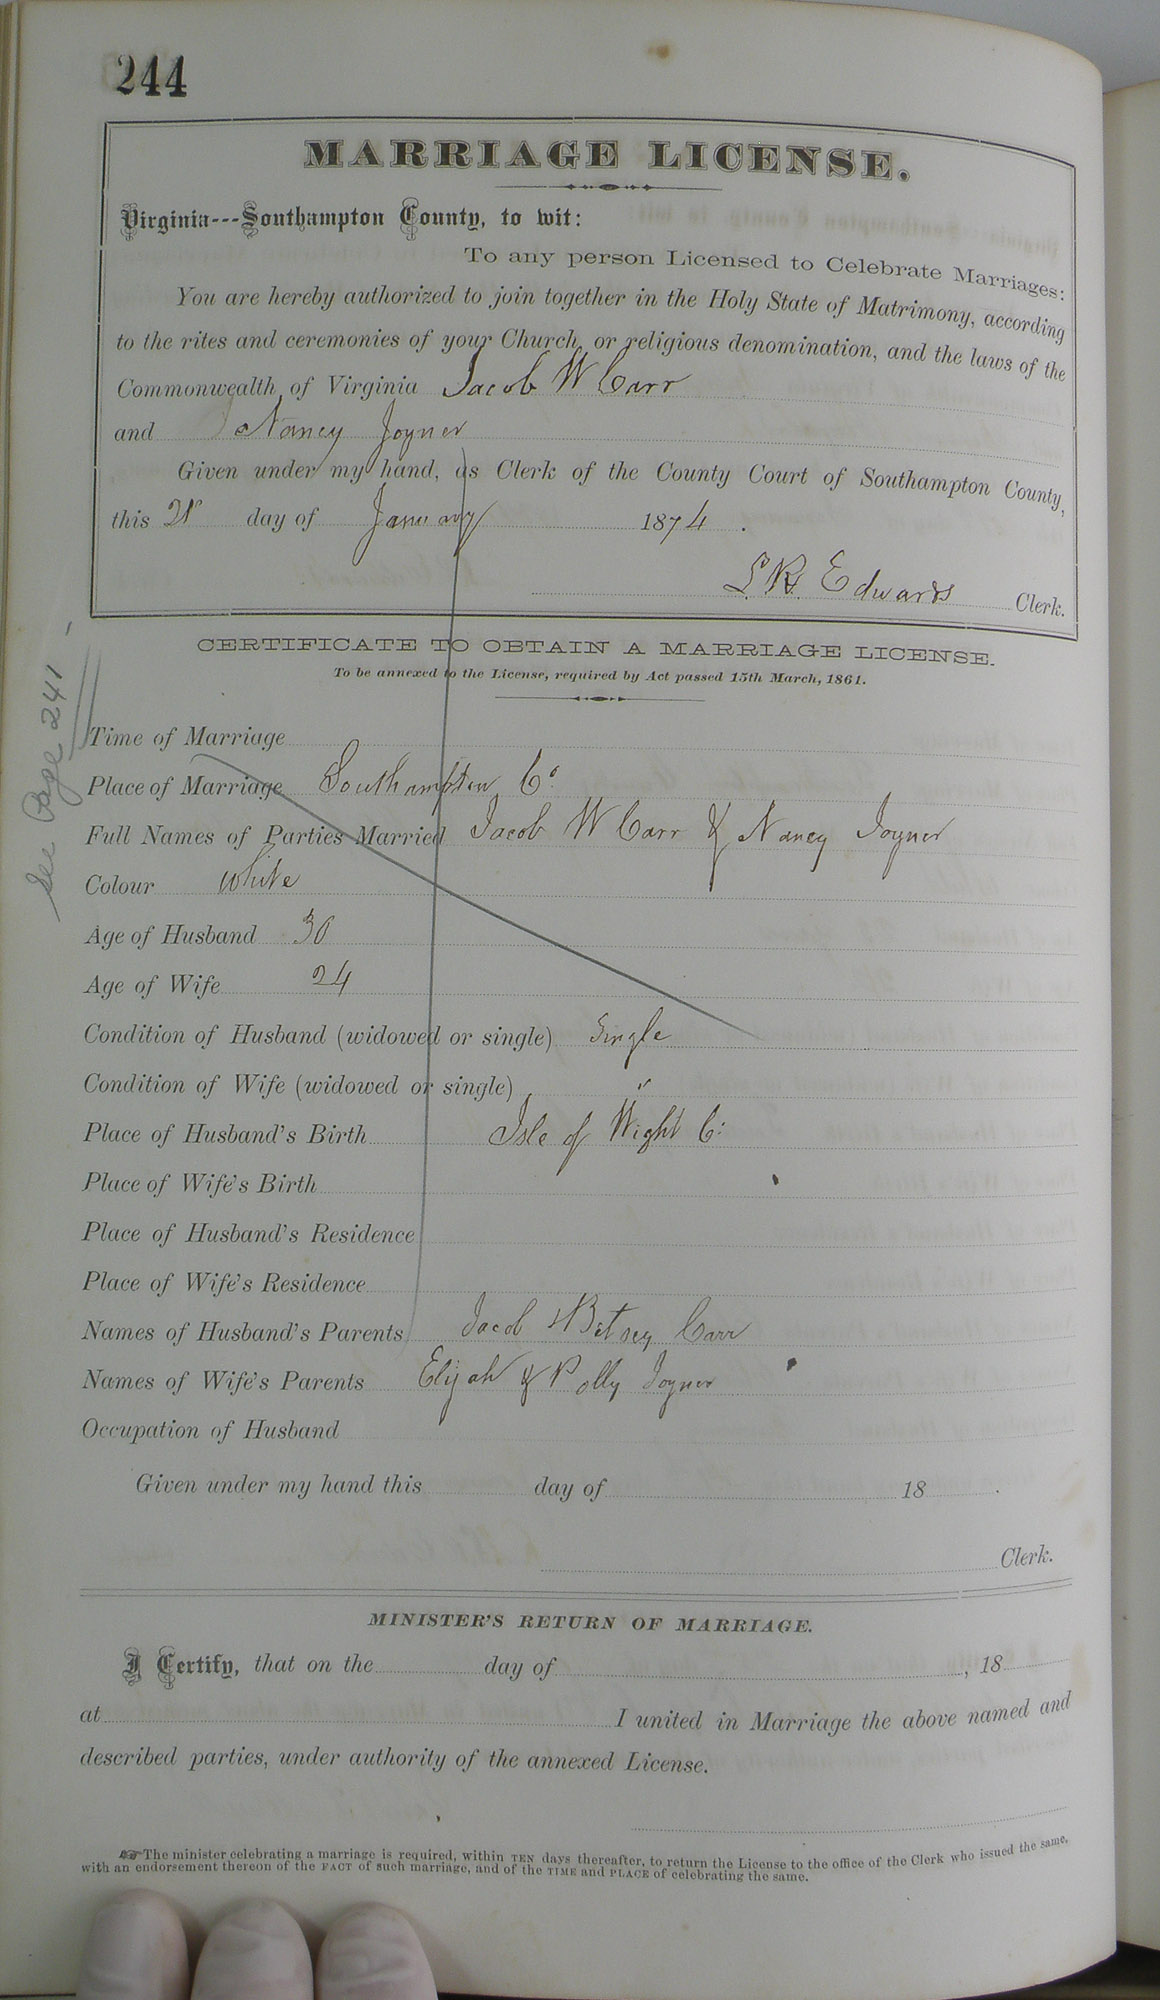 244
MARRIAGE LICENSE.
Virginia---Southampton County, to wit:
To any person Licensed to Celebrate Marriages:
You are hereby authorized to join together in the Holy State of Matrimony, according
to the rites and ceremonies of your Church, or religious denomination, and the laws of the
Commonwealth of Virginia Jacob W Carr
and Nancy Joyner
Given under my hand, as Clerk of the County Court of Southampton County,
this day of January 1874.
L R Edwards Clerk.
CERTIFICATE TO OBTAIN A MARRIAGE LICENSE.
To be annexed to the License, required by Act passed 15th March, 1861.
See Page 241
Time of Marriage
Place of Marriage Southampton Co.
Full Names of Parties Married Jacob W Carr & Nancy Joyner
Colour White
Age of Husband 30
Age of Wife 24
Condition of Husband (widowed or single) Single
Condition of Wife (widowed or single) "
Place of Husband's Birth Isle of Wight C:
Place of Wife's Birth
Place of Husband's Residence
Place of Wife's Residence
Names of Husband's Parents Jacob & Betsey Carr
Names of Wife's Parents Elijah & Polly Joyner
Occupation of Husband
Given under my hand this day of 18 .
Clerk.
MINISTER'S RETURN OF MARRIAGE.
I Certify, that on the day of , 18
at I united in Marriage the above named and
described parties, under authority of the annexed License.
☞The minister celebrating a marriage is required, within TEN days thereafter, to return the License to the office of the Clerk who issued the same,
with an endorsement thereon of the FACT of such marriage, and of the TIME and PLACE of celebrating the same.